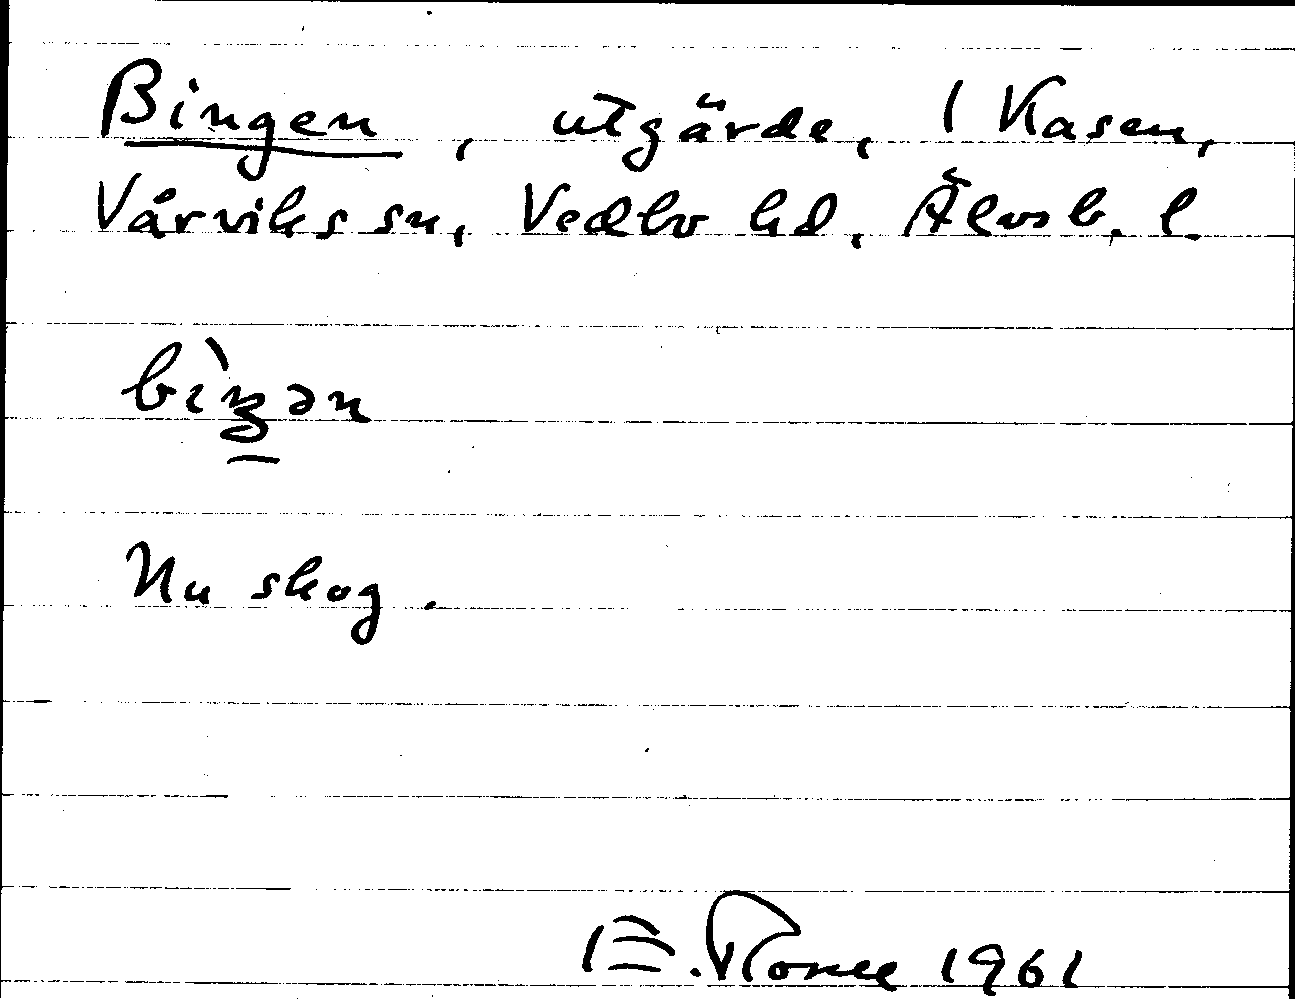 Bingen, utgärde, 1 Kasen,
Vårviks sn, Vedbo hd, Älvsb. l.
bìŋən
Nu skog.
1961